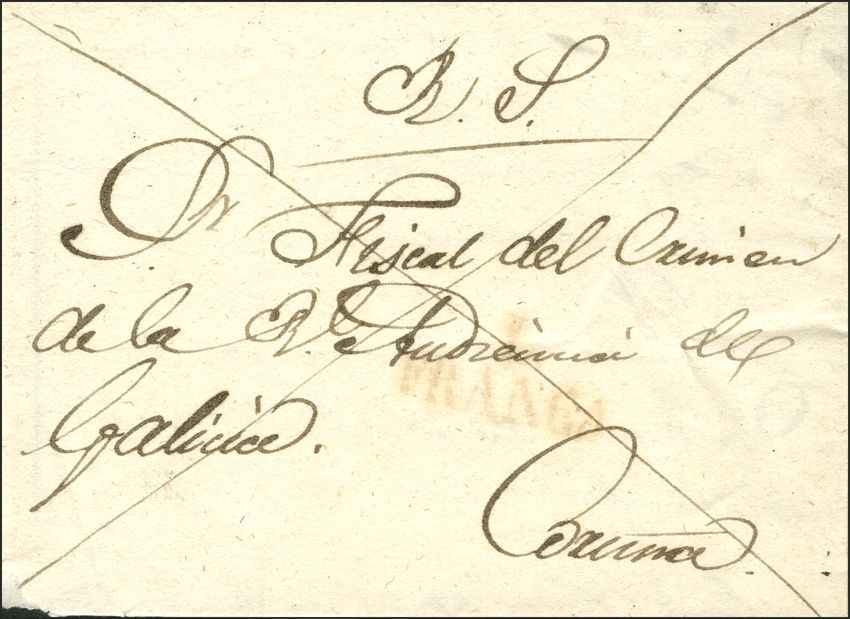 R. S.
Sr Fiscal del Crimen
de la Rl Audiencia de
Galicia.
Coruña.